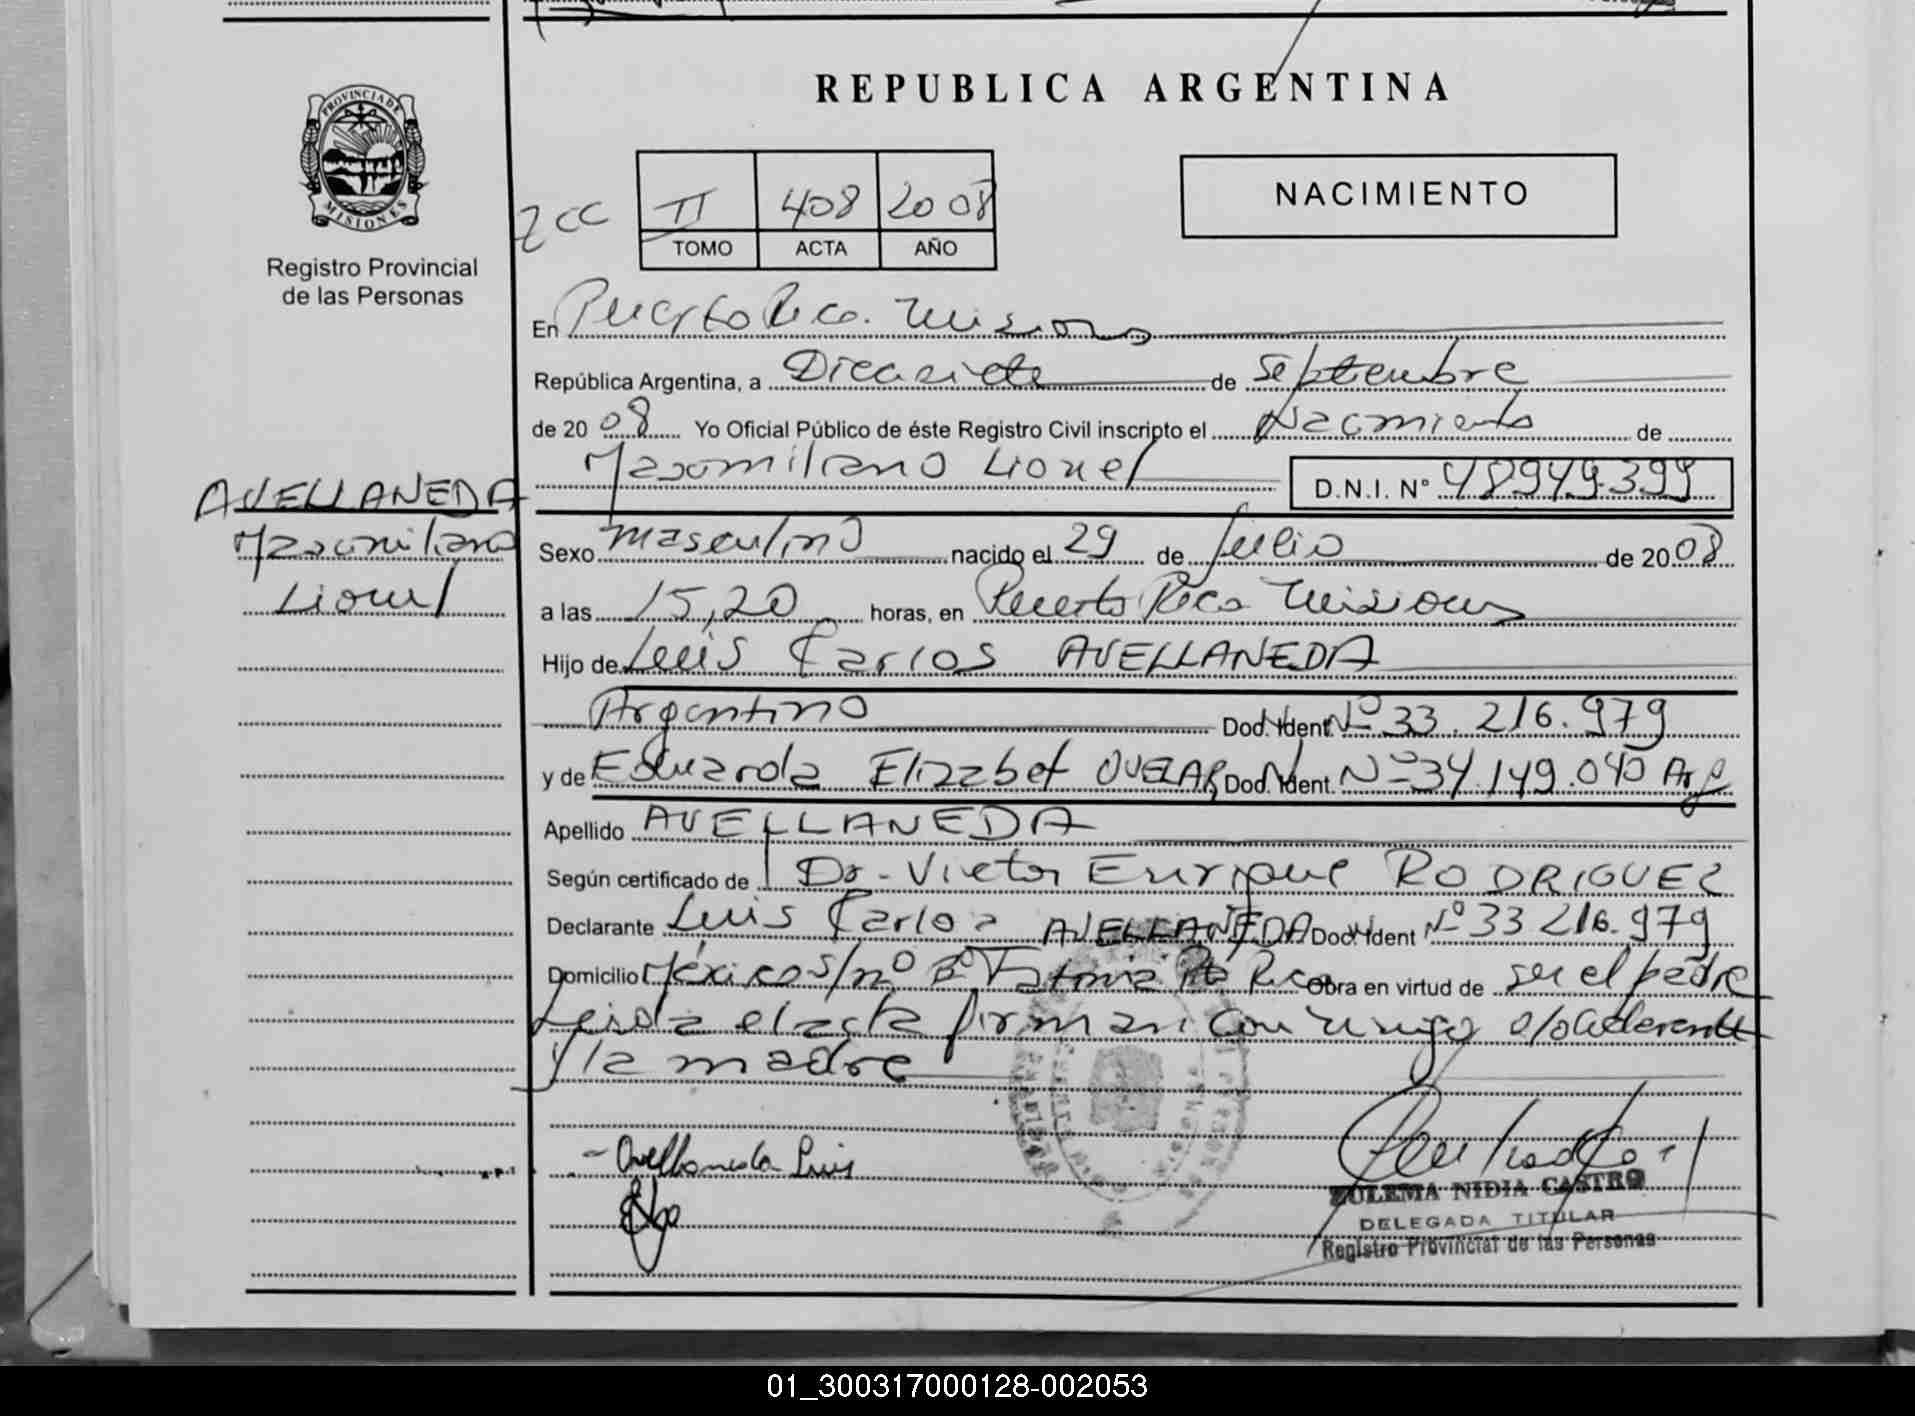 PROVINCIA DE
MISIONES
Registro Provincial
de las Personas
REPUBLICA ARGENTINA
II 408 2008
TOMO ACTA AÑO
NACIMIENTO
En Puerto Rico. Misiones
República Argentina, a Diecisiete de Septiembre
de 2008 Yo Oficial Público de éste Registro Civil inscripto el Nacimiento de
Maximiliano Lionel D.N.I. Nº 48949.399
AVELLANEDA
Maximiliano
Lionel
Sexo masculino nacido el 29 de Julio de 2008
a las 15,20 horas, en Puerto Rico Misiones
Hijo de Luis Carlos AVELLANEDA
Argentino Doc. Ident. Nº 33.216.979
y de Eduarda Elizabet OVELAR, Doc. Ident. Nº 34.149.040 Arg
Apellido AVELLANEDA
Según certificado de Dr. Victor Enrique RODRIGUEZ
Declarante Luis Carlos AVELLANEDA Doc. Ident Nº 33 216.979
Domicilio México s/nº Bº Fatima Pto Rico Obra en virtud de ser el padre
Leida el acta firman conmigo el declarante
y la madre
- Avellaneda Luis
ZULEMA NIDIA CASTRO
DELEGADA TITULAR
Registro Provincial de las Personas
01_300317000128-002053